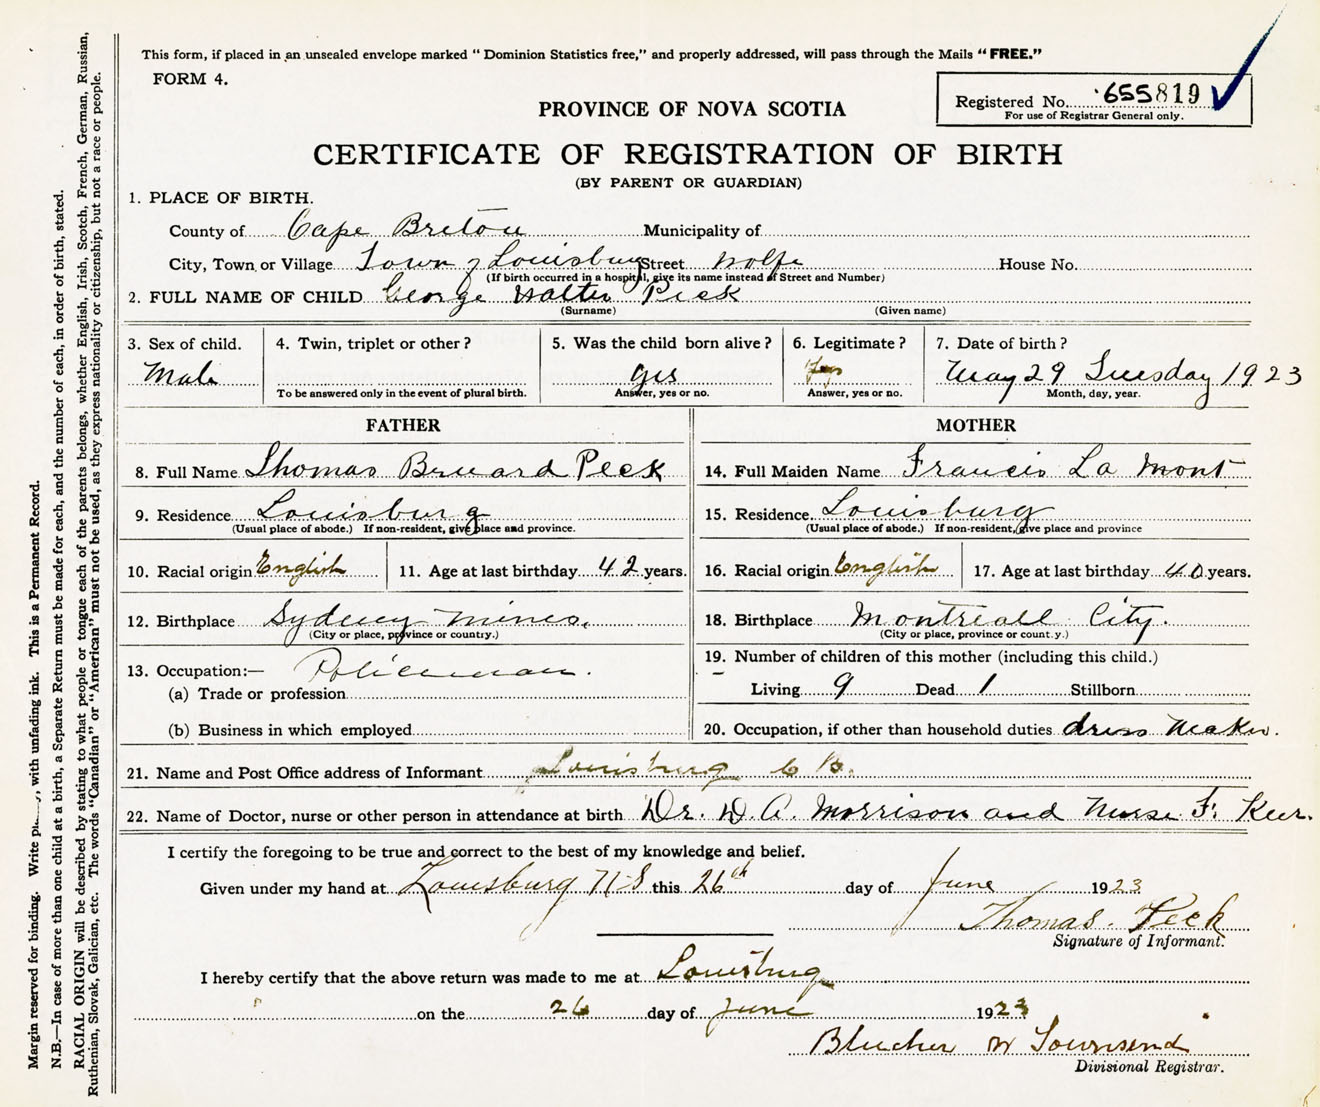 This form, if placed in an unsealed envelope marked "Dominion Statistics free," and properly addressed, will pass through the Mails "FREE."
FORM 4.
Registered No. 655819
For use of Registrar General only.
PROVINCE OF NOVA SCOTIA
CERTIFICATE OF REGISTRATION OF BIRTH
(BY PARENT OR GUARDIAN)
1. PLACE OF BIRTH.
County of Cape Breton Municipality of
City, Town or Village Town of Louisburg Street Wolfe House No.
(If birth occurred in a hospital, give its name instead of Street and Number)
2. FULL NAME OF CHILD George Walter Peck
(Surname) (Given name)
3. Sex of child. 4. Twin, triplet or other? 5. Was the child born alive? 6. Legitimate? 7. Date of birth?
Male yes Yes May 29 Tuesday 1923
To be answered only in the event of plural birth. Answer, yes or no. Answer, yes or no. Month, day, year.
FATHER MOTHER
8. Full Name Thomas Bernard Peck 14. Full Maiden Name Francis La Mont
9. Residence Louisburg 15. Residence. Louisburg
(Usual place of abode.) If non-resident, give place and province. (Usual place of abode.) If non-resident, give place and province
10. Racial origin English 11. Age at last birthday 42 years. 16. Racial origin English 17. Age at last birthday 40 years.
12. Birthplace Sydney Mines. 18. Birthplace Montreall City.
(City or place, province or country.) (City or place, province or count.y.)
13. Occupation:— Policeman. 19. Number of children of this mother (including this child.)
(a) Trade or profession Living 9 Dead 1 Stillborn
(b) Business in which employed 20. Occupation, if other than household duties dress Maker.
21. Name and Post Office address of Informant Louisburg C B.
22. Name of Doctor, nurse or other person in attendance at birth Dr. D. A. Morrison and Nurse F. Kerr.
I certify the foregoing to be true and correct to the best of my knowledge and belief.
Given under my hand at Louisburg N S this 26th day of June 1923
Thomas. Peck
Signature of Informant.
I hereby certify that the above return was made to me at Louisburg
on the 26 day of June 1923
Blucher W Townsend
Divisional Registrar.
Margin reserved for binding. Write with unfading ink. This is a Permanent Record.
N.B.—In case of more than one child at a birth, a Separate Return must be made for each, and the number of each, in order of birth, stated.
RACIAL ORIGIN will be described by stating to what people or tongue each of the parents belongs, whether English, Irish, Scotch, French, German, Russian,
Ruthenian, Slovak, Galician, etc. The words "Canadian" or "American" must not be used, as they express nationality or citizenship, but not a race or people.